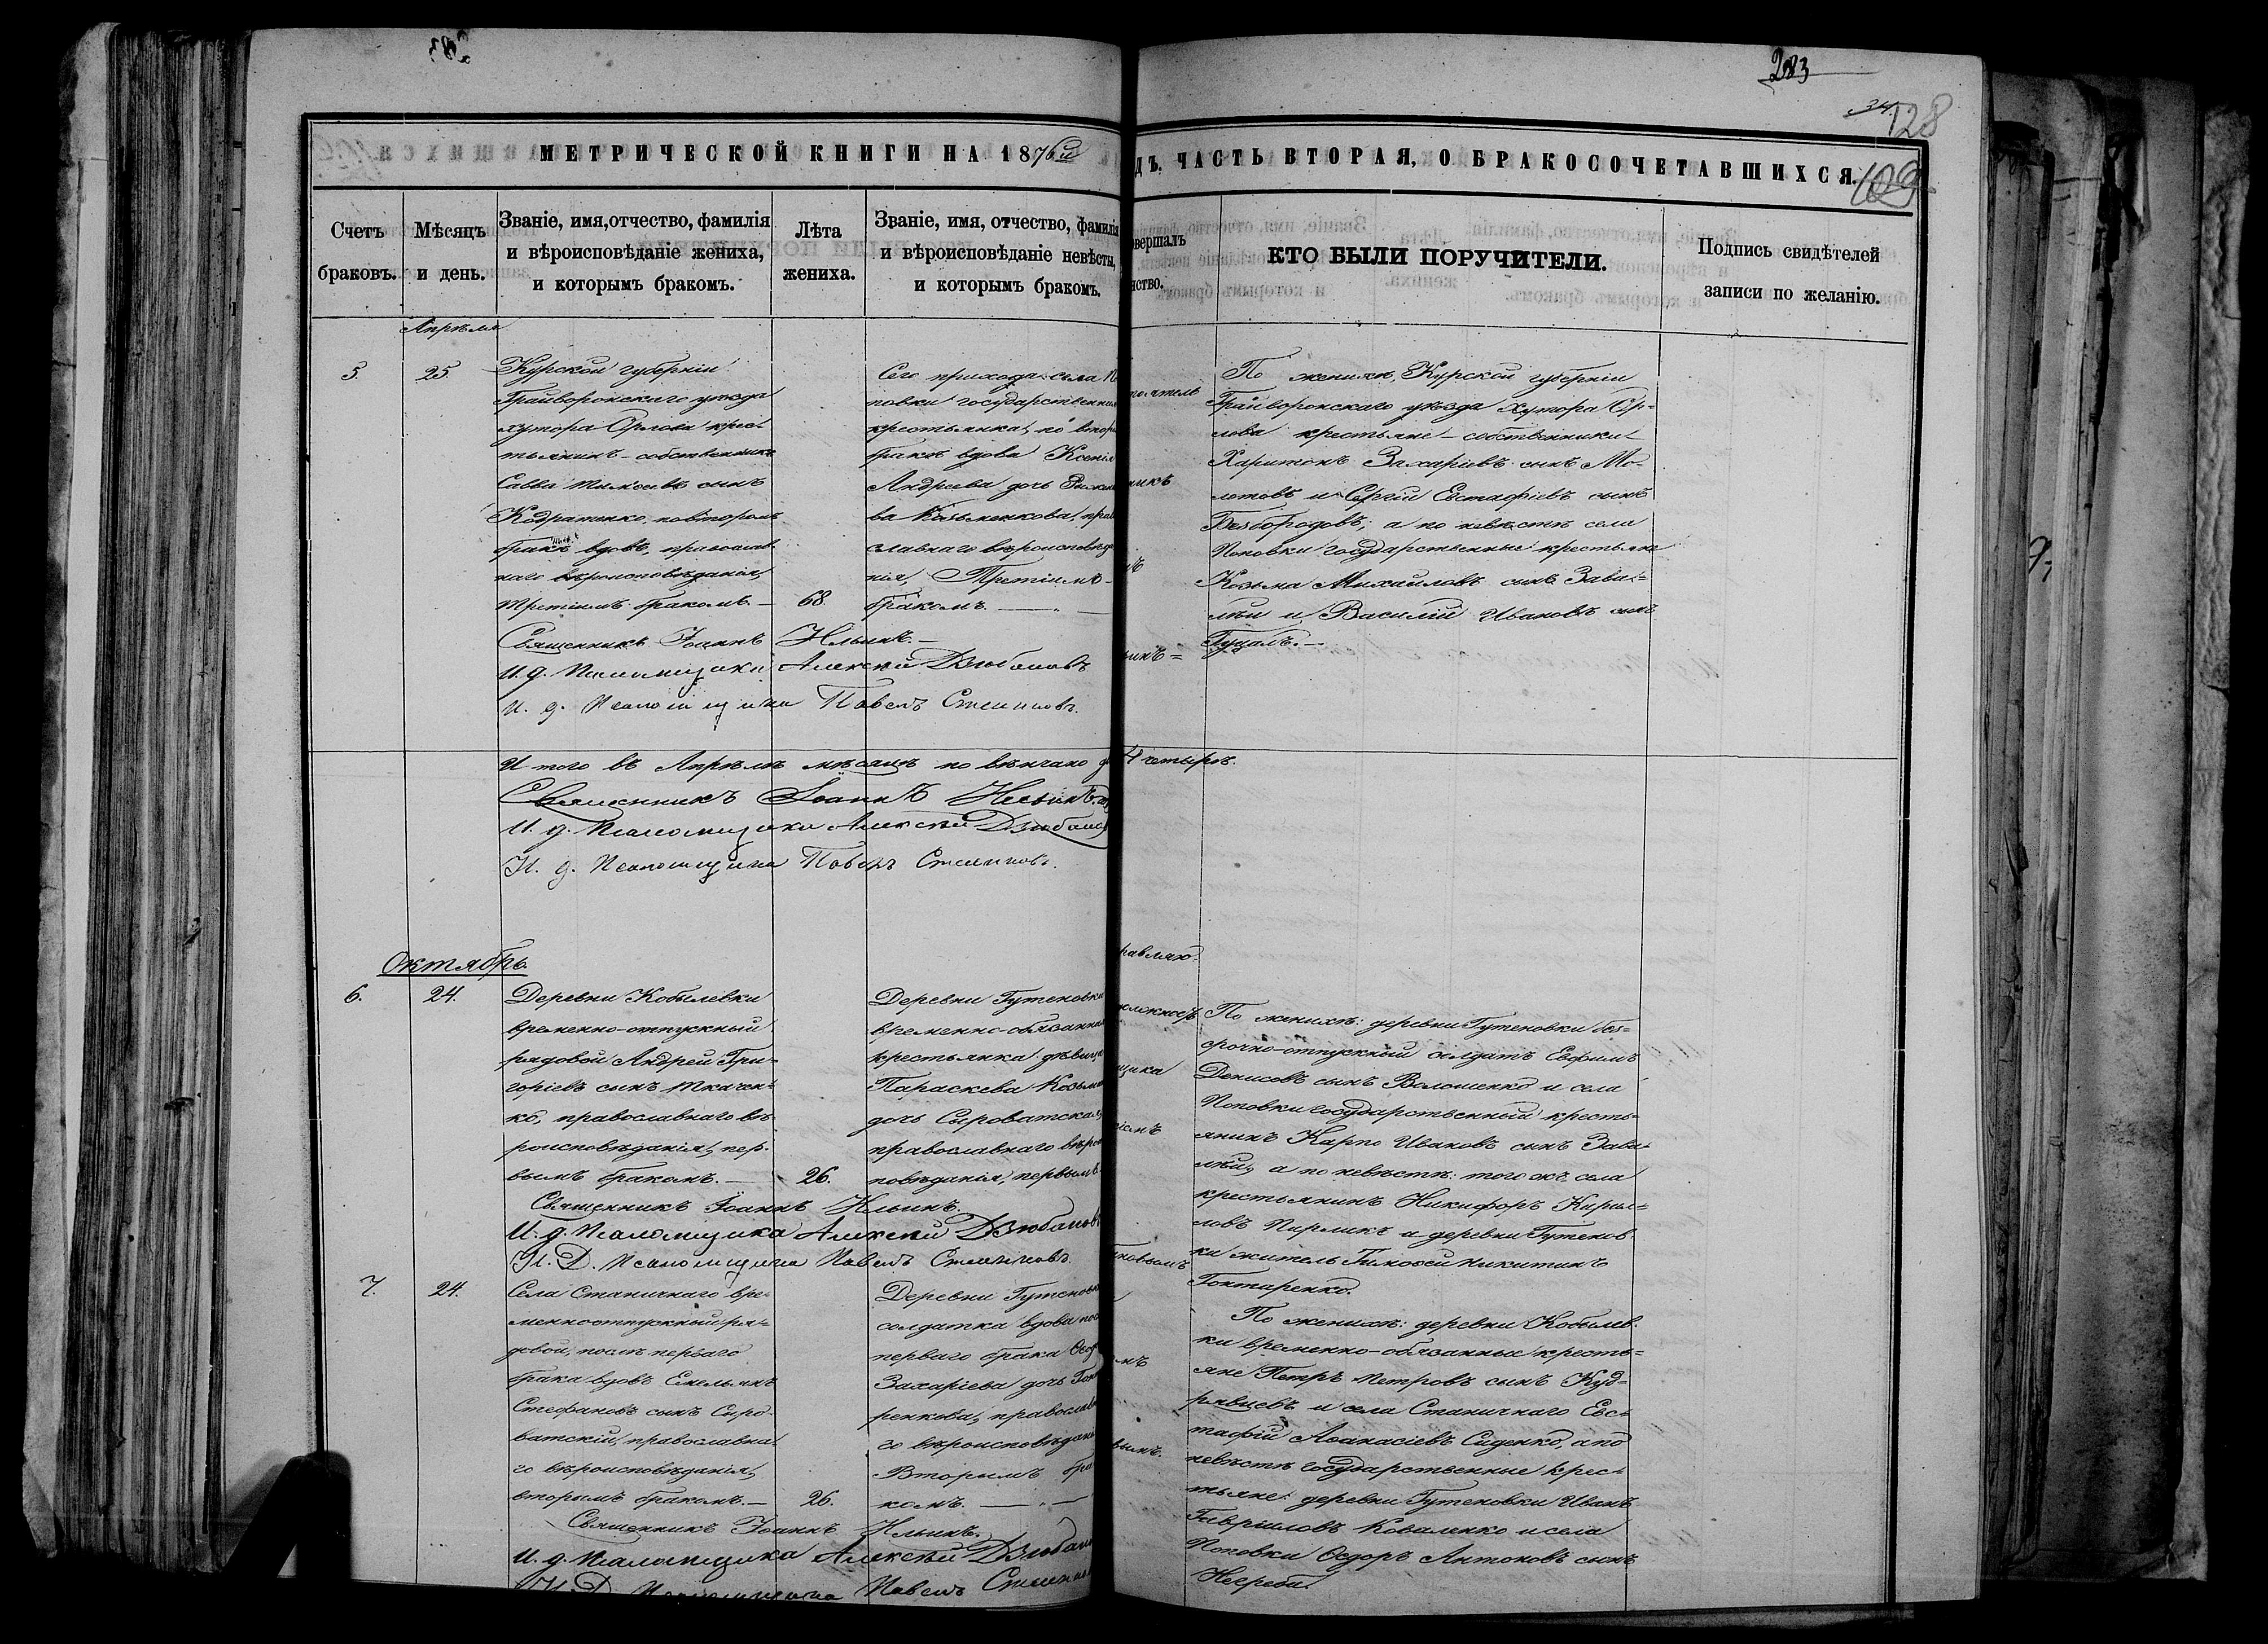 283
34
128
109
МЕТРИЧЕСКОЙ КНИГИ НА 1876й
ДЪ. ЧАСТЬ ВТОРАЯ, О БРАКОСОЧЕТАВШИХСЯ.
Счетъ браковъ.
Мѣсяцъ и день.
Званіе, имя, отчество, фамилія
и вѣроисповѣданіе жениха,
и которымъ бракомъ.
Лѣта
жениха.
Званіе, имя, отчество, фамилія
и вѣроисповѣданіе невѣсты,
и которымъ бракомъ.
овершалъ
нство.
КТО БЫЛИ ПОРУЧИТЕЛИ.
Подпись свидѣтелей
записи по желанію.
Апрѣль
5.
25.
Курской губерніи
Грайворонскаго уѣзда
хутора Орлова крес-
тьянинъ-собственникъ
Савва сынъ
бракѣ вдовъ, православ
наго вѣроисповѣданія,
третіимъ бракомъ.—
68.
Сего прихода села П
повки государственная
крестьянка, по втор
бракѣ вдова Ксенія
Андреева дочь
прав
славнаго вѣроисповѣд
нія, Третіимъ
бракомъ.
По женихѣ, Курской губерніи
Грайворонскаго уѣзда Хутора Ор-
лова крестьяне-собственники
Харитонъ Захаріевъ сынъ Мо-
лотовъ и Сергій Евстафіевъ сынъ
Безбородовъ; а по невѣстѣ села
Поповки государственные крестьяне
Козьма Михаиловъ сынъ Зави-
лѣй и Василій Ивановъ сынъ
Гуцалъ.—
Священникъ Іоаннъ Ильинъ.—
И. д. Псаломщика Алексѣй Дзюбановъ
И. д. Псаломщика Павелъ
Итого въ Апрѣлѣ мѣсяцѣ повѣнчано
4 четыре.
Священникъ Іоаннъ Ильинъ
И. д. Псаломщика Алексѣй Дзюбано
И. д. Псаломщика Павелъ
Октябрь.
6.
24.
Деревни Кобылевки
временно-отпускный
рядовой Андрей Гри-
горіевъ сынъ Ткачен-
ко, православнаго вѣ-
роисповѣданія, пер-
вымъ бракомъ.—
26.
Деревни Гутеновки
временно-обязанная
крестьянка дѣвица
Параскева Козьми
дочь Сыроватская,
православнаго вѣро
повѣданія, первымъ
По женихѣ: деревни Гутеновки без-
срочно-отпускный солдатъ Евфимъ
Денисовъ сынъ Волошенко и села
Поповки государственный кресть-
янинъ Карпъ Ивановъ сынъ Зави-
лѣй, а по невѣстѣ: того жъ села
крестьянинъ Никифоръ Кирил-
ловъ Пирликъ и деревни Гутенов-
ки житель Тимоѳей Никитинъ
Гонтаренко.
Священникъ Іоаннъ Ильинъ.
И. д. Псаломщика Алексѣй Дзюбановъ
И. Д. Псаломщика Павелъ
7.
24.
Села Станичнаго вре-
менноотпускный ря-
довой, послѣ перваго
брака вдовъ Емельянъ
Стефановъ сынъ Сыро-
ватскій, православна-
го вѣроисповѣданія,
вторымъ бракомъ.—
26.
Деревни Гутеновк
солдатка вдова пос
перваго брака Ѳеод
Захаріева дочь Гон
ренкова, православн
го вѣроисповѣдан
Вторымъ бра
комъ.
По женихѣ: деревни Кобылев-
ки временно-обязанные кресть-
яне Петръ Петровъ сынъ Куд-
рявцевъ и села Станичнаго Евс-
тафій Аѳанасіевъ Сиденко, а по
невѣстѣ государственные крес-
тьяне: деревни Гутеновки Иванъ
Гавриловъ Коваленко и села
Поповки Ѳедоръ Антоновъ сынъ
Священникъ Іоаннъ Ильинъ.
И. д. Псаломщика Алексѣй Дзюбано
И. Д. Псаломщика Павелъ